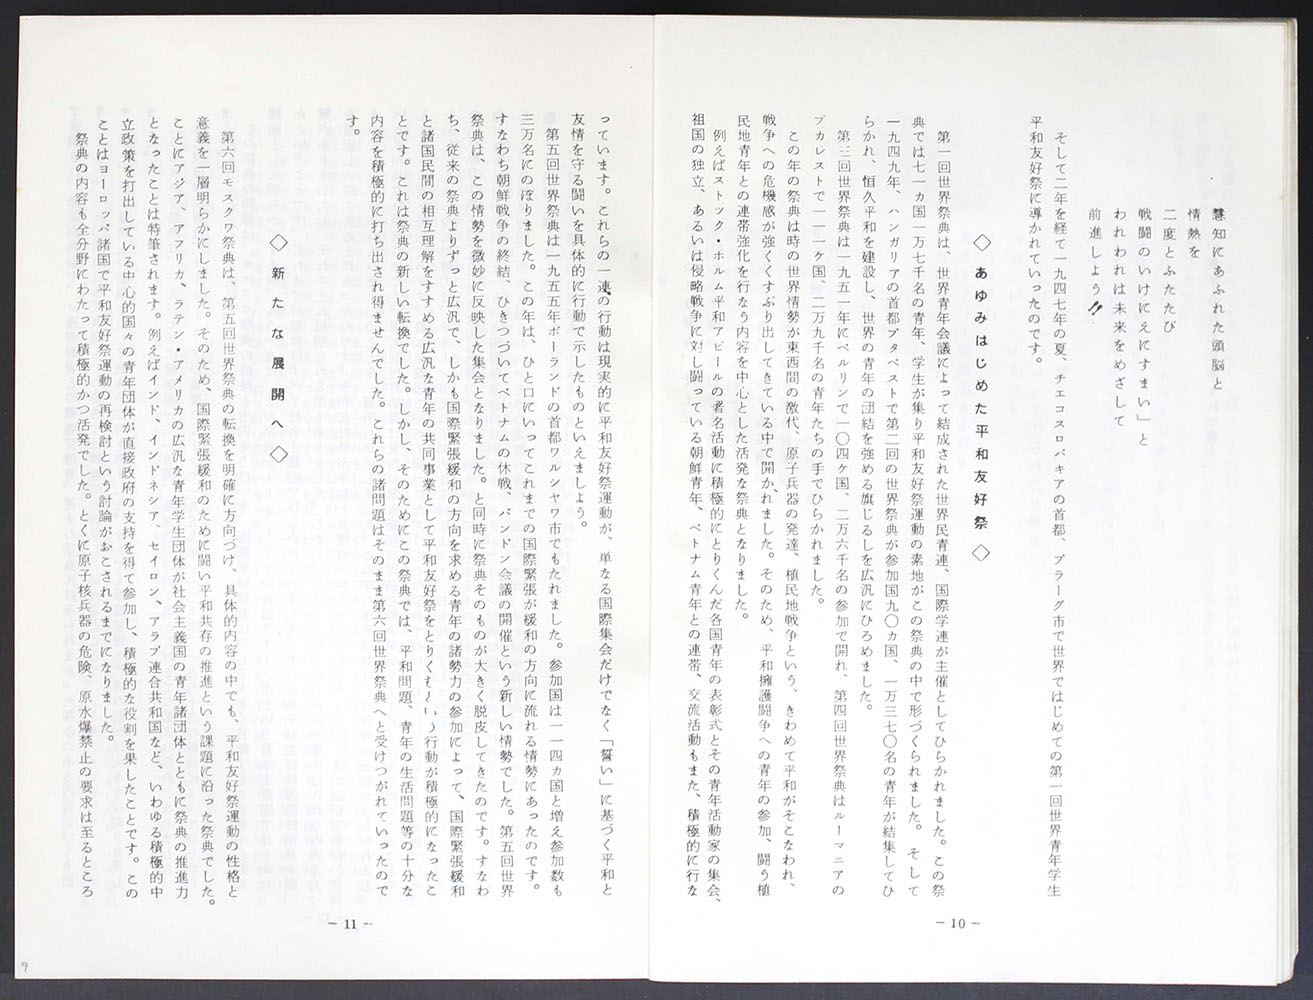 慧知にあふれた頭脳と
情熱を
二度とふたたび
戦闘のいけにえにすまい」と
われわれは未来をめざして
前進しよう!!
そして二年を経て一九四七年の夏、チェコスロバキアの首都、プラーグ市で世界ではじめての第一回世界青年学生
平和友好祭に導かれていったのです。
◇ あゆみはじめた平和友好祭 ◇
第一回世界祭典は、世界青年会議によって結成された世界民青連、国際学連が主催としてひらかれました。この祭
典では七一カ国一万七千名の青年、学生が集り平和友好祭運動の素地がこの祭典の中で形づくられました。そして
一九四九年、ハンガリアの首都ブタペストで第二回の世界祭典が参加国九〇カ国、一万三七〇名の青年が結集してひ
らかれ、恒久平和を建設し、世界の青年の団結を強める旗じるしを広汎にひろめました。
第三回世界祭典は一九五一年にベルリンで一〇四ヶ国、二万六千名の参加で開れ、第四回世界祭典はルーマニアの
ブカレストで一一一ヶ国、二万九千名の青年たちの手でひらかれました。
この年の祭典は時の世界情勢が東西間の激代、原子兵器の発達、植民地戦争という、きわめて平和がそこなわれ、
戦争への危機感が強くくすぶり出してきている中で開かれました。そのため、平和擁護闘争への青年の参加、闘う植
民地青年との連帯強化を行なう内容を中心とした活発な祭典となりました。
例えばストック・ホルム平和アピールの署名活動に積極的にとりくんだ各国青年の表彰式とその青年活動家の集会、
祖国の独立、あるいは侵略戦争に対し闘っている朝鮮青年、ベトナム青年との連帯、交流活動もまた、積極的に行な
― 10 ―
っています。これらの一連の行動は現実的に平和友好祭運動が、単なる国際集会だけでなく「誓い」に基づく平和と
友情を守る闘いを具体的に行動で示したものといえましよう。
第五回世界祭典は一九五五年ポーランドの首都ワルシヤワ市でもたれました。参加国は一一四カ国と増え参加数も
三万名にのぼりました。この年は、ひと口にいってこれまでの国際緊張が緩和の方向に流れる情勢にあったのです。
すなわち朝鮮戦争の終結、ひきつづいてベトナムの休戦、バンドン会議の開催という新しい情勢でした。第五回世界
祭典は、この情勢を微妙に反映した集会となりました。と同時に祭典そのものが大きく脱皮してきたのです。すなわ
ち、従来の祭典よりずっと広汎で、しかも国際緊張緩和の方向を求める青年の諸勢力の参加によって、国際緊張緩和
と諸国民間の相互理解をすすめる広汎な青年の共同事業として平和友好祭をとりくむという行動が積極的になったこ
とです。これは祭典の新しい転換でした。しかし、そのためにこの祭典では、平和問題、青年の生活問題等の十分な
内容を積極的に打ち出され得ませんでした。これらの諸問題はそのまま第六回世界祭典へと受けつがれていったので
す。
◇ 新たな展開へ ◇
第六回モスクワ祭典は、第五回世界祭典の転換を明確に方向づけ、具体的内容の中でも、平和友好祭運動の性格と
意義を一層明らかにしました。そのため、国際緊張緩和のために闘い平和共存の推進という課題に沿った祭典でした。
ことにアジア、アフリカ、ラテン・アメリカの広汎な青年学生団体が社会主義国の青年諸団体とともに祭典の推進力
となったことは特筆されます。例えばインド、インドネシア、セイロン、アラブ連合共和国など、いわゆる積極的中
立政策を打出している中心的国々の青年団体が直接政府の支持を得て参加し、積極的な役割を果したことです。この
ことはヨーロッパ諸国で平和友好祭運動の再検討という討論がおこされるまでになりました。
祭典の内容も全分野にわたって積極的かつ活発でした。とくに原子核兵器の危険、原水爆禁止の要求は至るところ
― 11 ―
9